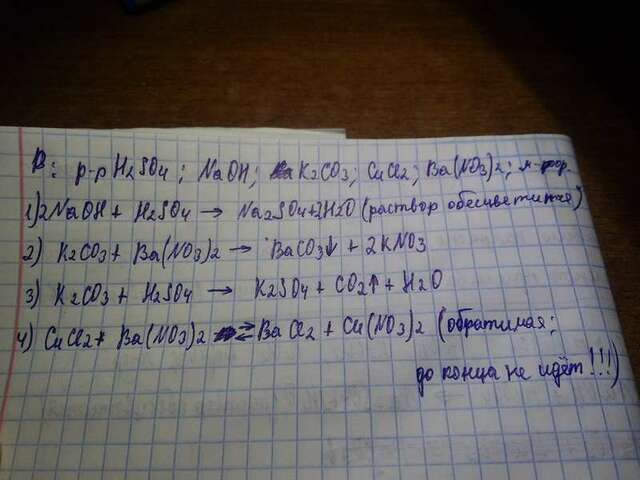 В: р-р H2SO4; NaOH; K2CO3; CuCl2; Ba(NO3)2;
1) 2NaOH + H2SO4 → Na2SO4+2H2O (раствор обесцветится)
2) K2CO3 + Ba(NO3)2 → BaCO3↓ + 2KNO3
3) K2CO3 + H2SO4 → K2SO4 + CO2↑ + H2O
4) CuCl2+ Ba(NO3)2 ⇄ BaCl2 + Cu(NO3)2 (обратимая;
до конца не идёт!!!)